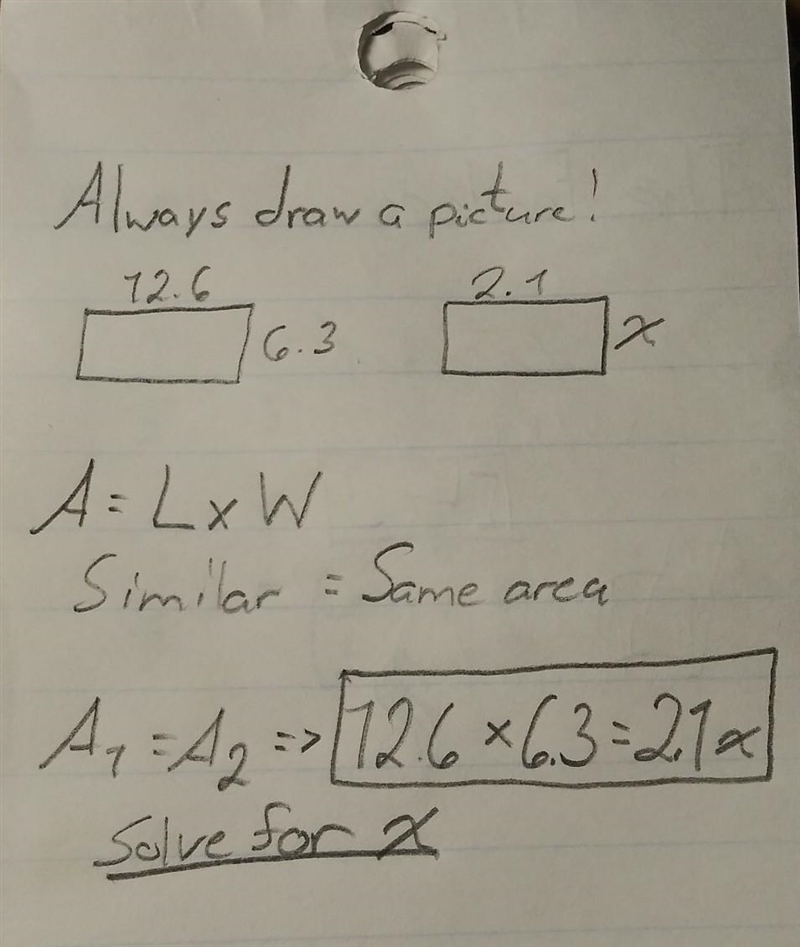 Always draw a picture!
12.6 2.1
6.3 x
A = L x W
Similar = Same area
A₁ = A₂ => 12.6 × 6.3 = 2.1x
Solve for x